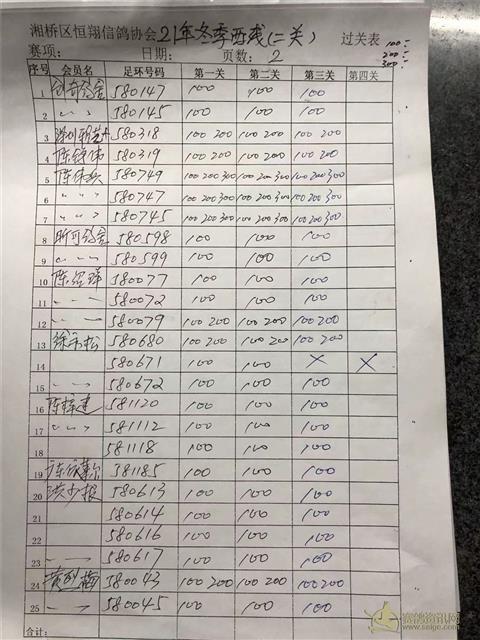 湘桥区恒翔信鸽协会 21年冬季西线(二关) 过关表 100:
赛项: 日期: 页数: 2 200:
300:
序号 会员名 足环号码 第一关 第二关 第三关 第四关
1 580147 100 100 100
2 〃 〃 580145 100 100 100
3 580318 100 200 100 200 100 200
4 陈锦伟 580319 100 200 100 200 100 200
5 580749 100 200 300 100 200 300 100 200 300
6 〃 〃 〃 580747 100 200 300 100 200 300 100 200 300
7 〃 〃 〃 580745 100 200 300 100 200 300 100 200 300
8 580598 100 100 100
9 〃 〃 〃 580599 100 100 100
10 580077 100 100 100
11 580072 100 100 100
12 580079 100 200 100 200 100 200
13 580680 100 200 100 200 100 200
14 580671 100 100 × ×
15 580672 100 100 100
16 581120 100 100 100
17 〃 〃 〃 581112 100 100 100
18 581118 100 100 100
19 581185 100 100 100
20 洪少报 580613 100 100 100
21 580614 100 100 100
22 580616 100 100 100
23 580617 100 100 100
24 580043 100 200 100 200 100 200
25 580045 100 100 100
合计:
赛鸽资讯网
www.saige.com